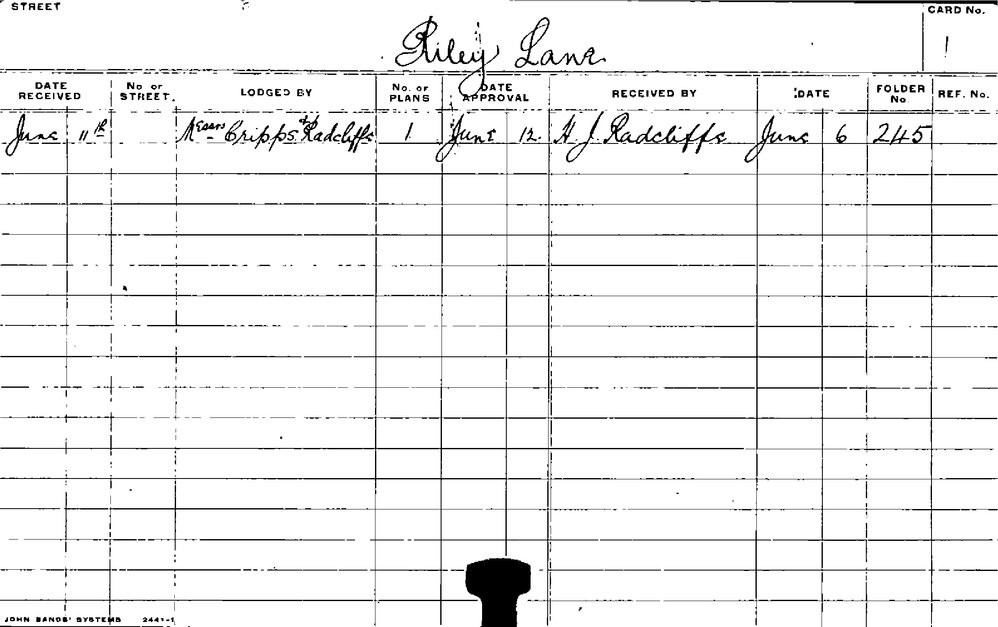 STREET
CARD No.
Riley Lane
1
DATE RECEIVED No of STREET. LODGED BY No. of PLANS DATE APPROVAL RECEIVED BY DATE FOLDER No. REF. No.
June 11th Messrs Cripps & Radcliffe 1 June 12. H J. Radcliffe June 6 245
JOHN SANDS' SYSTEMS 2441-1